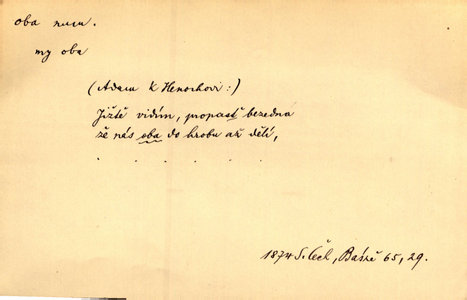 oba num.
my oba
(Adam k Henochovi:)
Jiště vidím, propasť bezedná
že nás oba do hrobu až dělí,
. . . . . .
1874 S. Čech, Básně 65, 29.